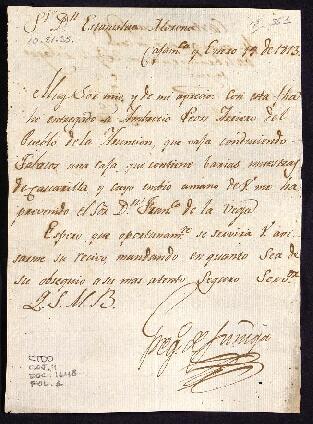 S.r D.n Estanislao Moreno
Caxam.ca y Enero 19 de 1813.
10-31-35
Muy Sor mio, y de mi aprecio: Con esta fha
he entregado a Ambrosio Perez Arriero del
Pueblo de la Asuncion, que pasa conduciendo
Tabacos una caxa que contiene varias muestras
de Cascarilla y cuyo embio amano de V. me ha
prevenido el Sor D.n Fran.co de la Vega.
Espero que oportunam.te se servirá V. avi
sarme su recivo, mandando en quanto sea de
su obsequio a su mas atento Seguro Serv.or
Q. S. M. B.
Greg.o de Zuñiga
CAJ. 4
DOC. 1448
FOL. 2